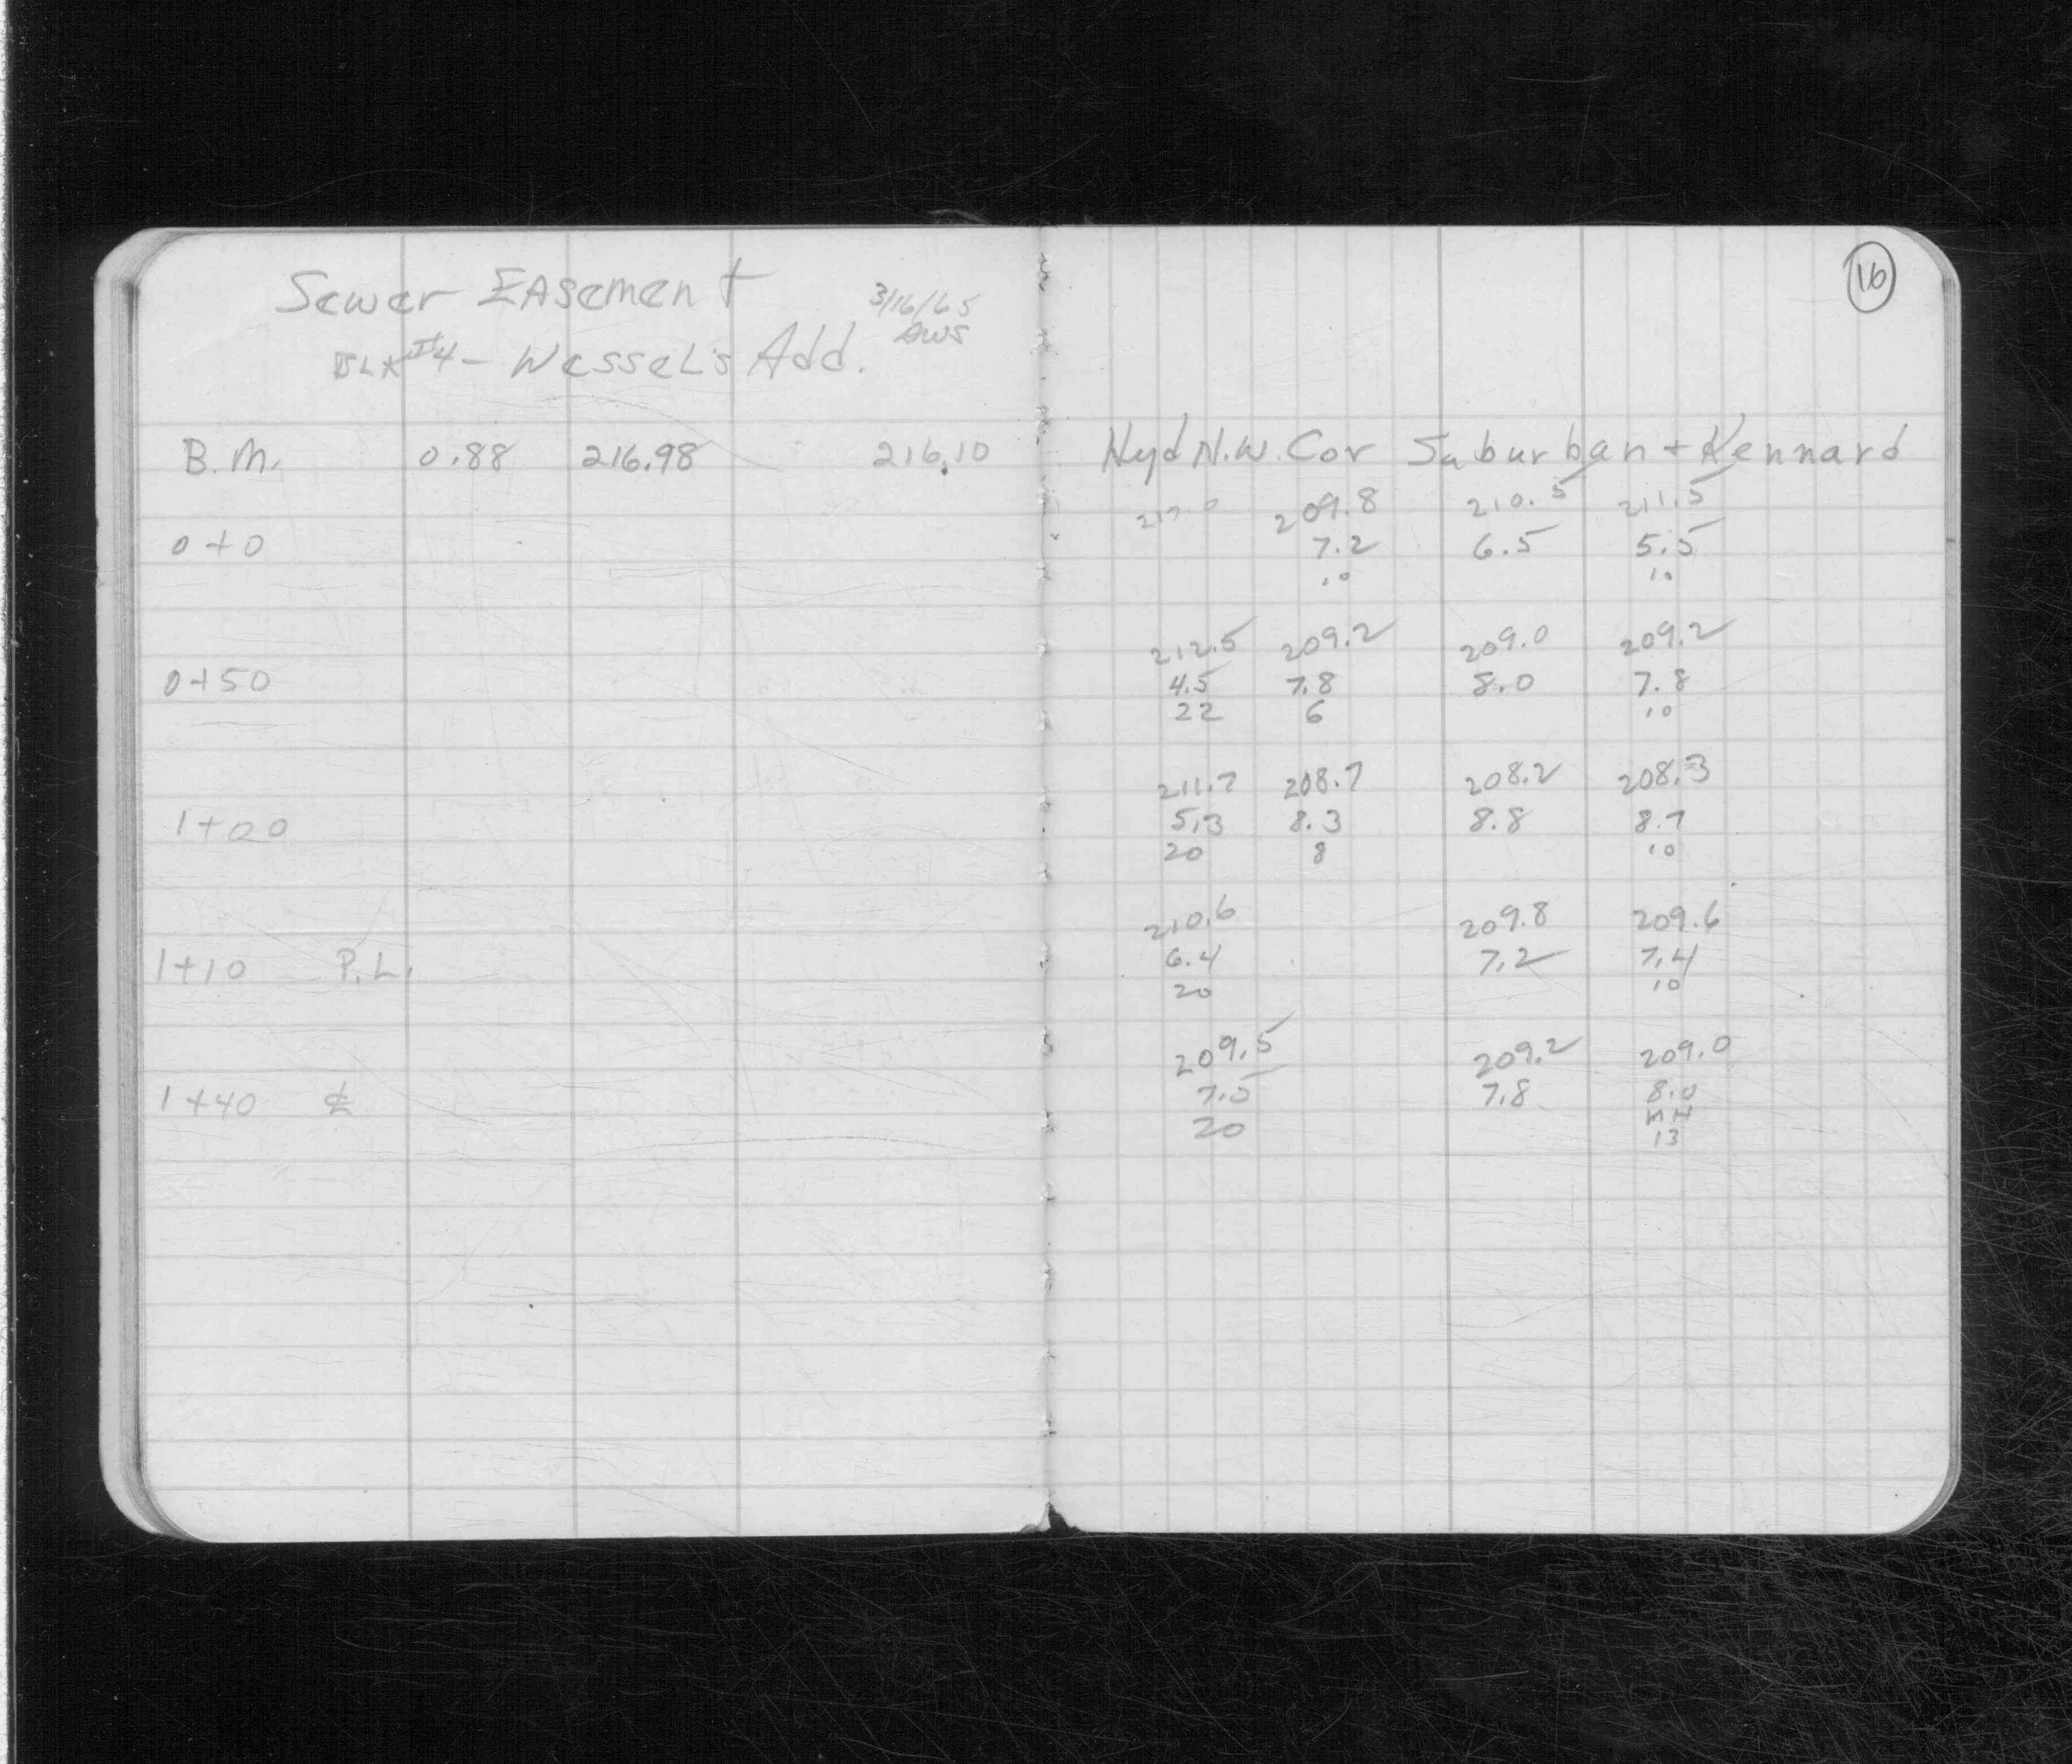 Sewer Easement
3/16/65
BLK #4 - Wessel's Add.
AWS
B.M. 0.88 216.98 216.10
0+0
0+50
1+00
1+10 P.L.
1+40 ℄
16
Hyd N.W. Cor Suburban + Kennard
217.0 209.8 210.5 211.5
7.2 6.5 5.5
10 10
212.5 209.2 209.0 209.2
4.5 7.8 8.0 7.8
22 6 10
211.7 208.7 208.2 208.3
5.3 8.3 8.8 8.7
20 8 10
210.6 209.8 209.6
6.4 7.2 7.4
20 10
209.5 209.2 209.0
7.5 7.8 8.0
MH
20 13